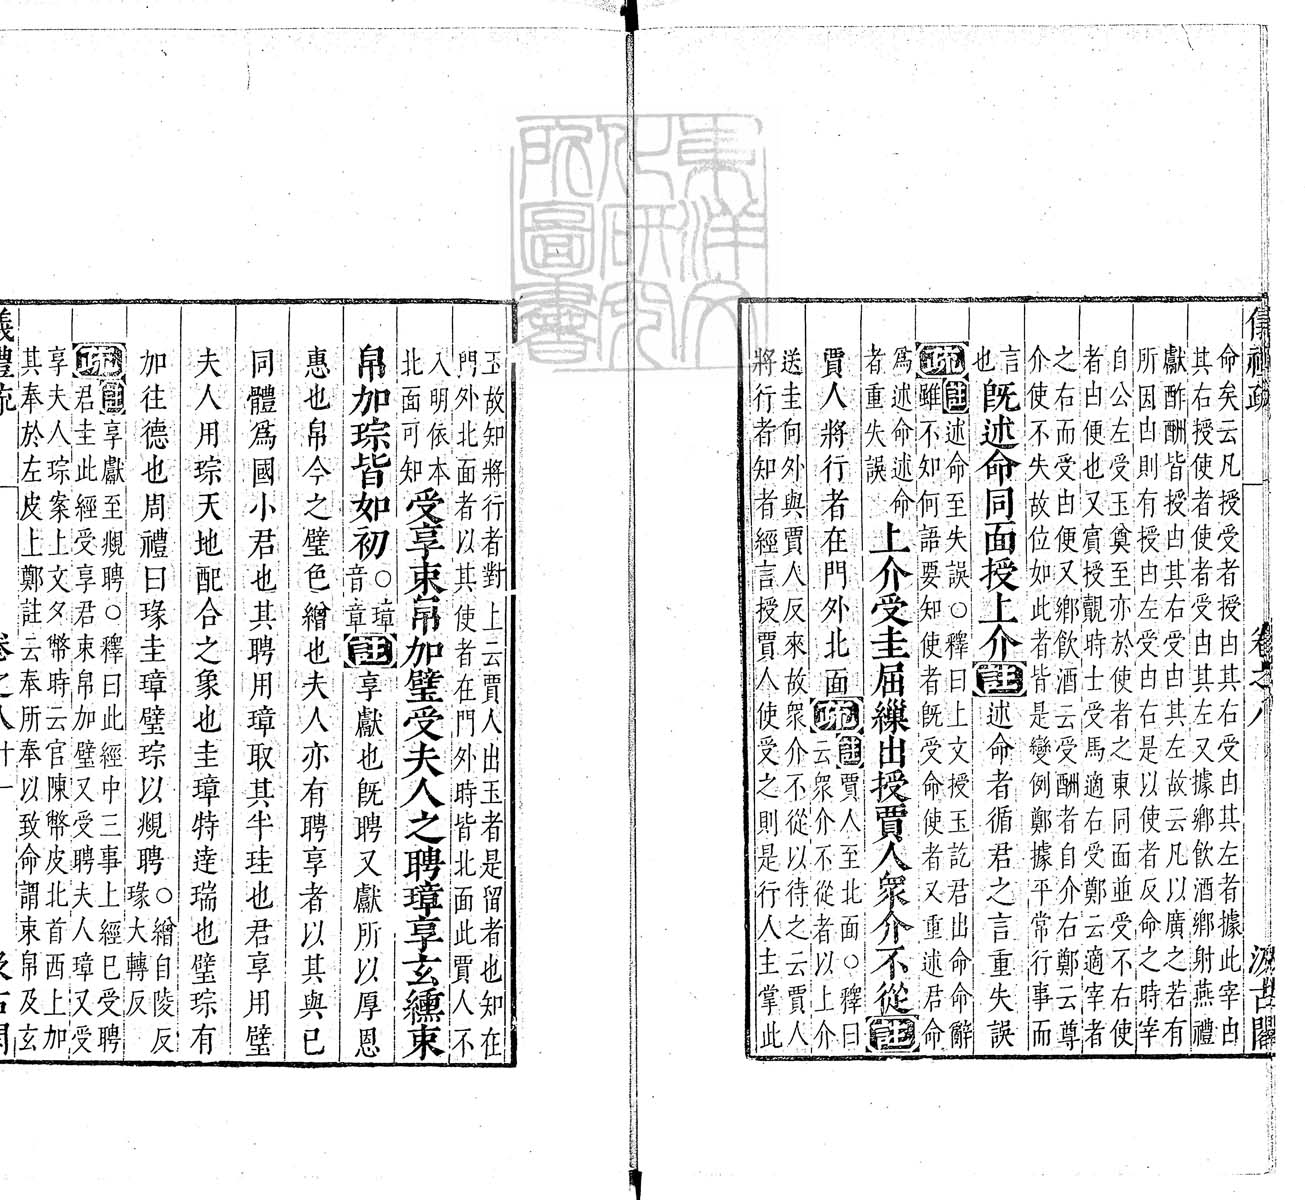 儀禮疏 卷之八 汲古閣
命矣云凡授受者授由其右受由其左者據此宰由
其右授使者使者受由其左又據鄉飲酒鄉射燕禮
獻酢酬皆授由其右受由其左故云凡以廣之若有
所因由則有授由左受由右是以使者反命之時宰
自公左受玉奠至亦於使者之東同面並受不右使
者由便也又賓授覿時士受馬適右受鄭云適宰者
之右而受由便又鄉飲酒云受酬者自介右鄭云尊
介使不失故位如此者皆是變例鄭據平常行事而
言
也 既述命同面授上介 註 述命者循君之言重失誤
疏 註 述命至失誤○釋曰上文授玉訖君出命命辭
雖不知何語要知使者旣受命使者又重述君命
爲述命述命
者重失誤 上介受圭屈繅出授賈人衆介不從 註
賈人將行者在門外北面 疏 註 賈人至北面○釋曰
云衆介不從者以上介
送圭向外與賈人反來故衆介不從以待之云賈人
將行者知者經言授賈人使受之則是行人主掌此
玉故知將行者對上云賈人出玉者是留者也知在
門外北面者以其使者在門外時皆北面此賈人不
入明依本
北面可知 受享束帛加璧受夫人之聘璋享玄纁束
帛加琮皆如初 ○璋
音章 註 享獻也旣聘又獻所以厚恩
惠也帛今之璧色繒也夫人亦有聘享者以其與已
同體爲國小君也其聘用璋取其半珪也君享用璧
夫人用琮天地配合之象也圭璋特達瑞也璧琮有
加往德也周禮曰瑑圭璋璧琮以頫聘 ○繒自陵反
瑑大轉反
疏 註 享獻至頫聘○釋曰此經中三事上經已受聘
君圭此經受享君束帛加璧又受聘夫人璋又受
享夫人琮案上文夕幣時云官陳幣皮北首西上加
其奉於左皮上鄭註云奉所奉以致命謂束帛及玄
儀禮疏 卷之八 十一 汲古閣
東洋文化研究所圖書